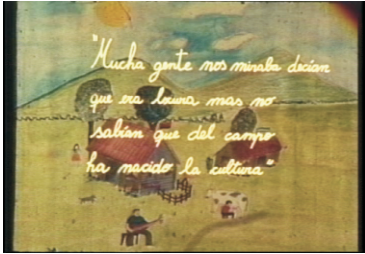 "Mucha gente nos miraba decían
que era locura mas no
sabían que del campo
ha nacido la cultura"